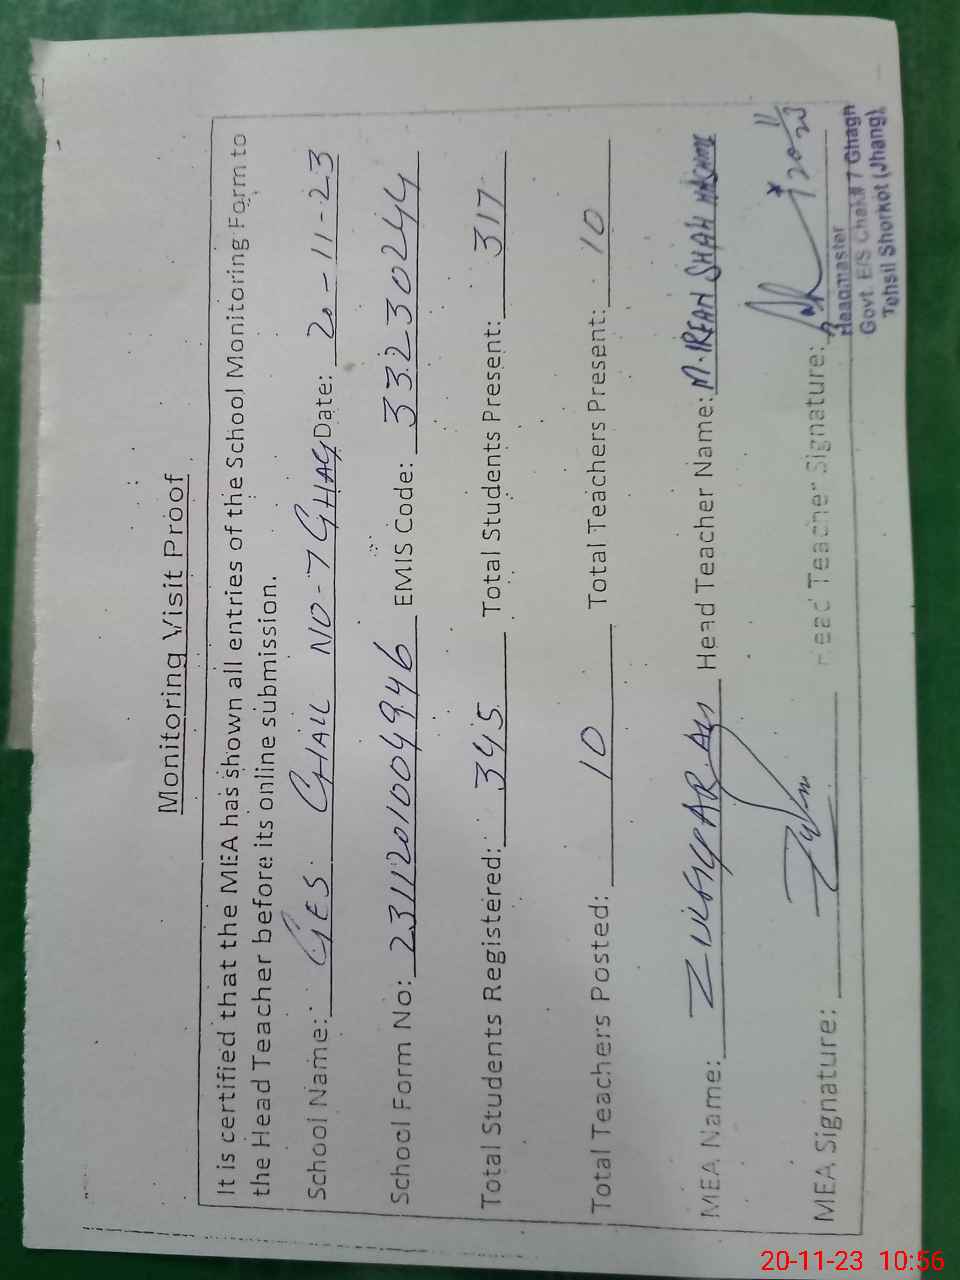 Monitoring Visit Proof
It is certified that the MEA has shown all entries of the School Monitoring Form to
the Head Teacher before its online submission.
School Name: GES CHAK NO-7 GHAG Date: 20-11-23
School Form No: 2311201004946 EMIS Code: 33230244
Total Students Registered: 345 Total Students Present: 317
Total Teachers Posted: 10 Total Teachers Present: 10
MEA Name: ZULFIQAR ALI Head Teacher Name: M. IRFAN SHAH HASHMI
MEA Signature: Head Teacher Signature: 20/11/23
Headmaster
Govt. E/S Chak# 7 Ghagh
Tehsil Shorkot (Jhang)
20-11-23 10:56